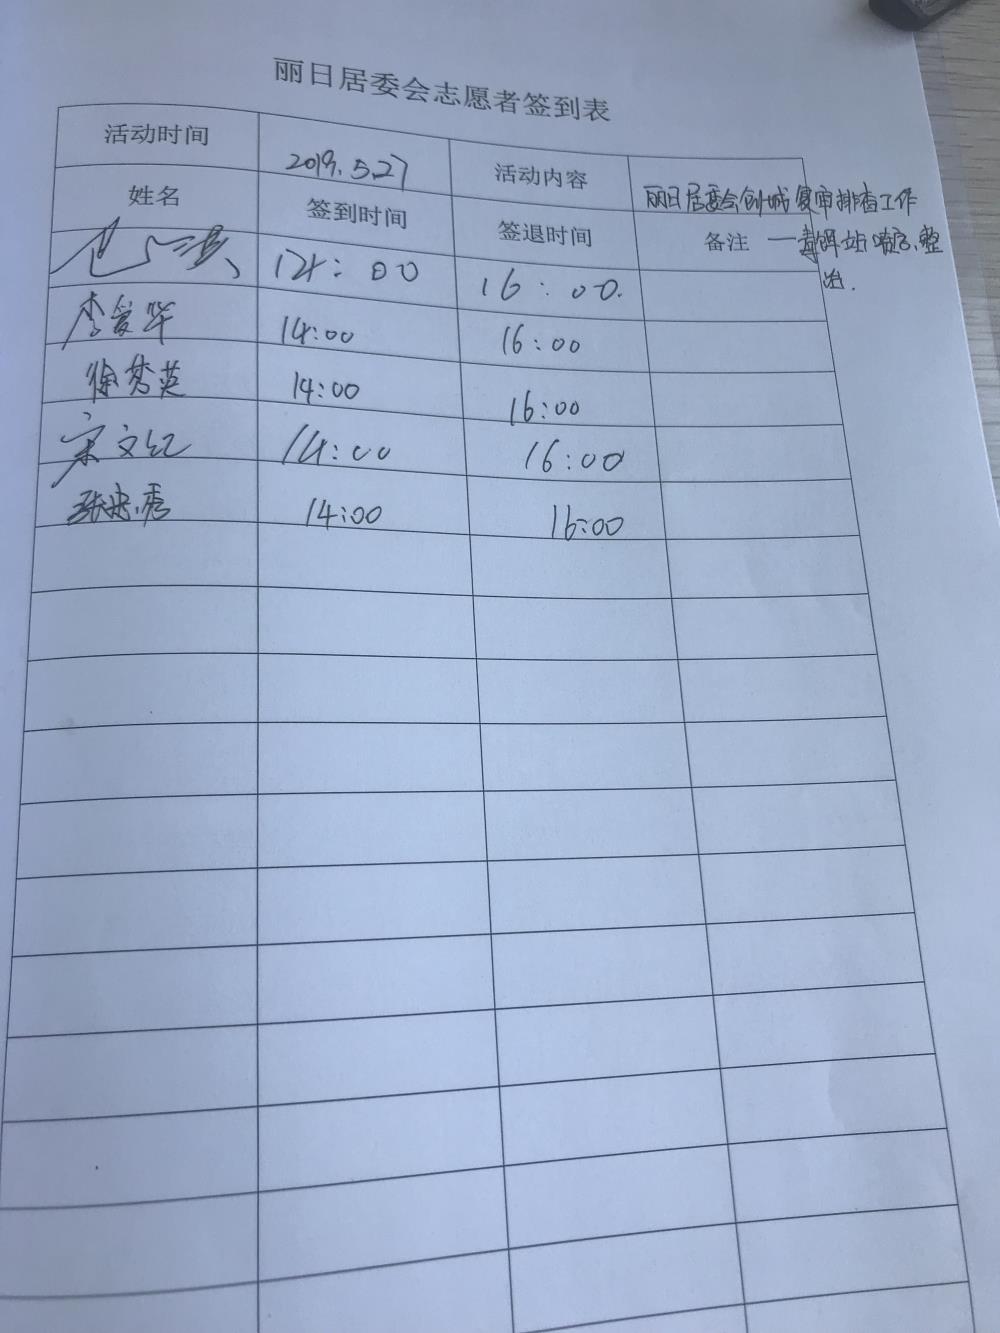 丽日居委会志愿者签到表
活动时间 2019.5.27 活动内容 丽日居委会创城复审排查工作
姓名 签到时间 签退时间 备注 一毒饵站 整
治.
14:00 16:00.
李爱华 14:00 16:00
徐梦英 14:00 16:00
宋文红 14:00 16:00
张忠秀 14:00 16:00